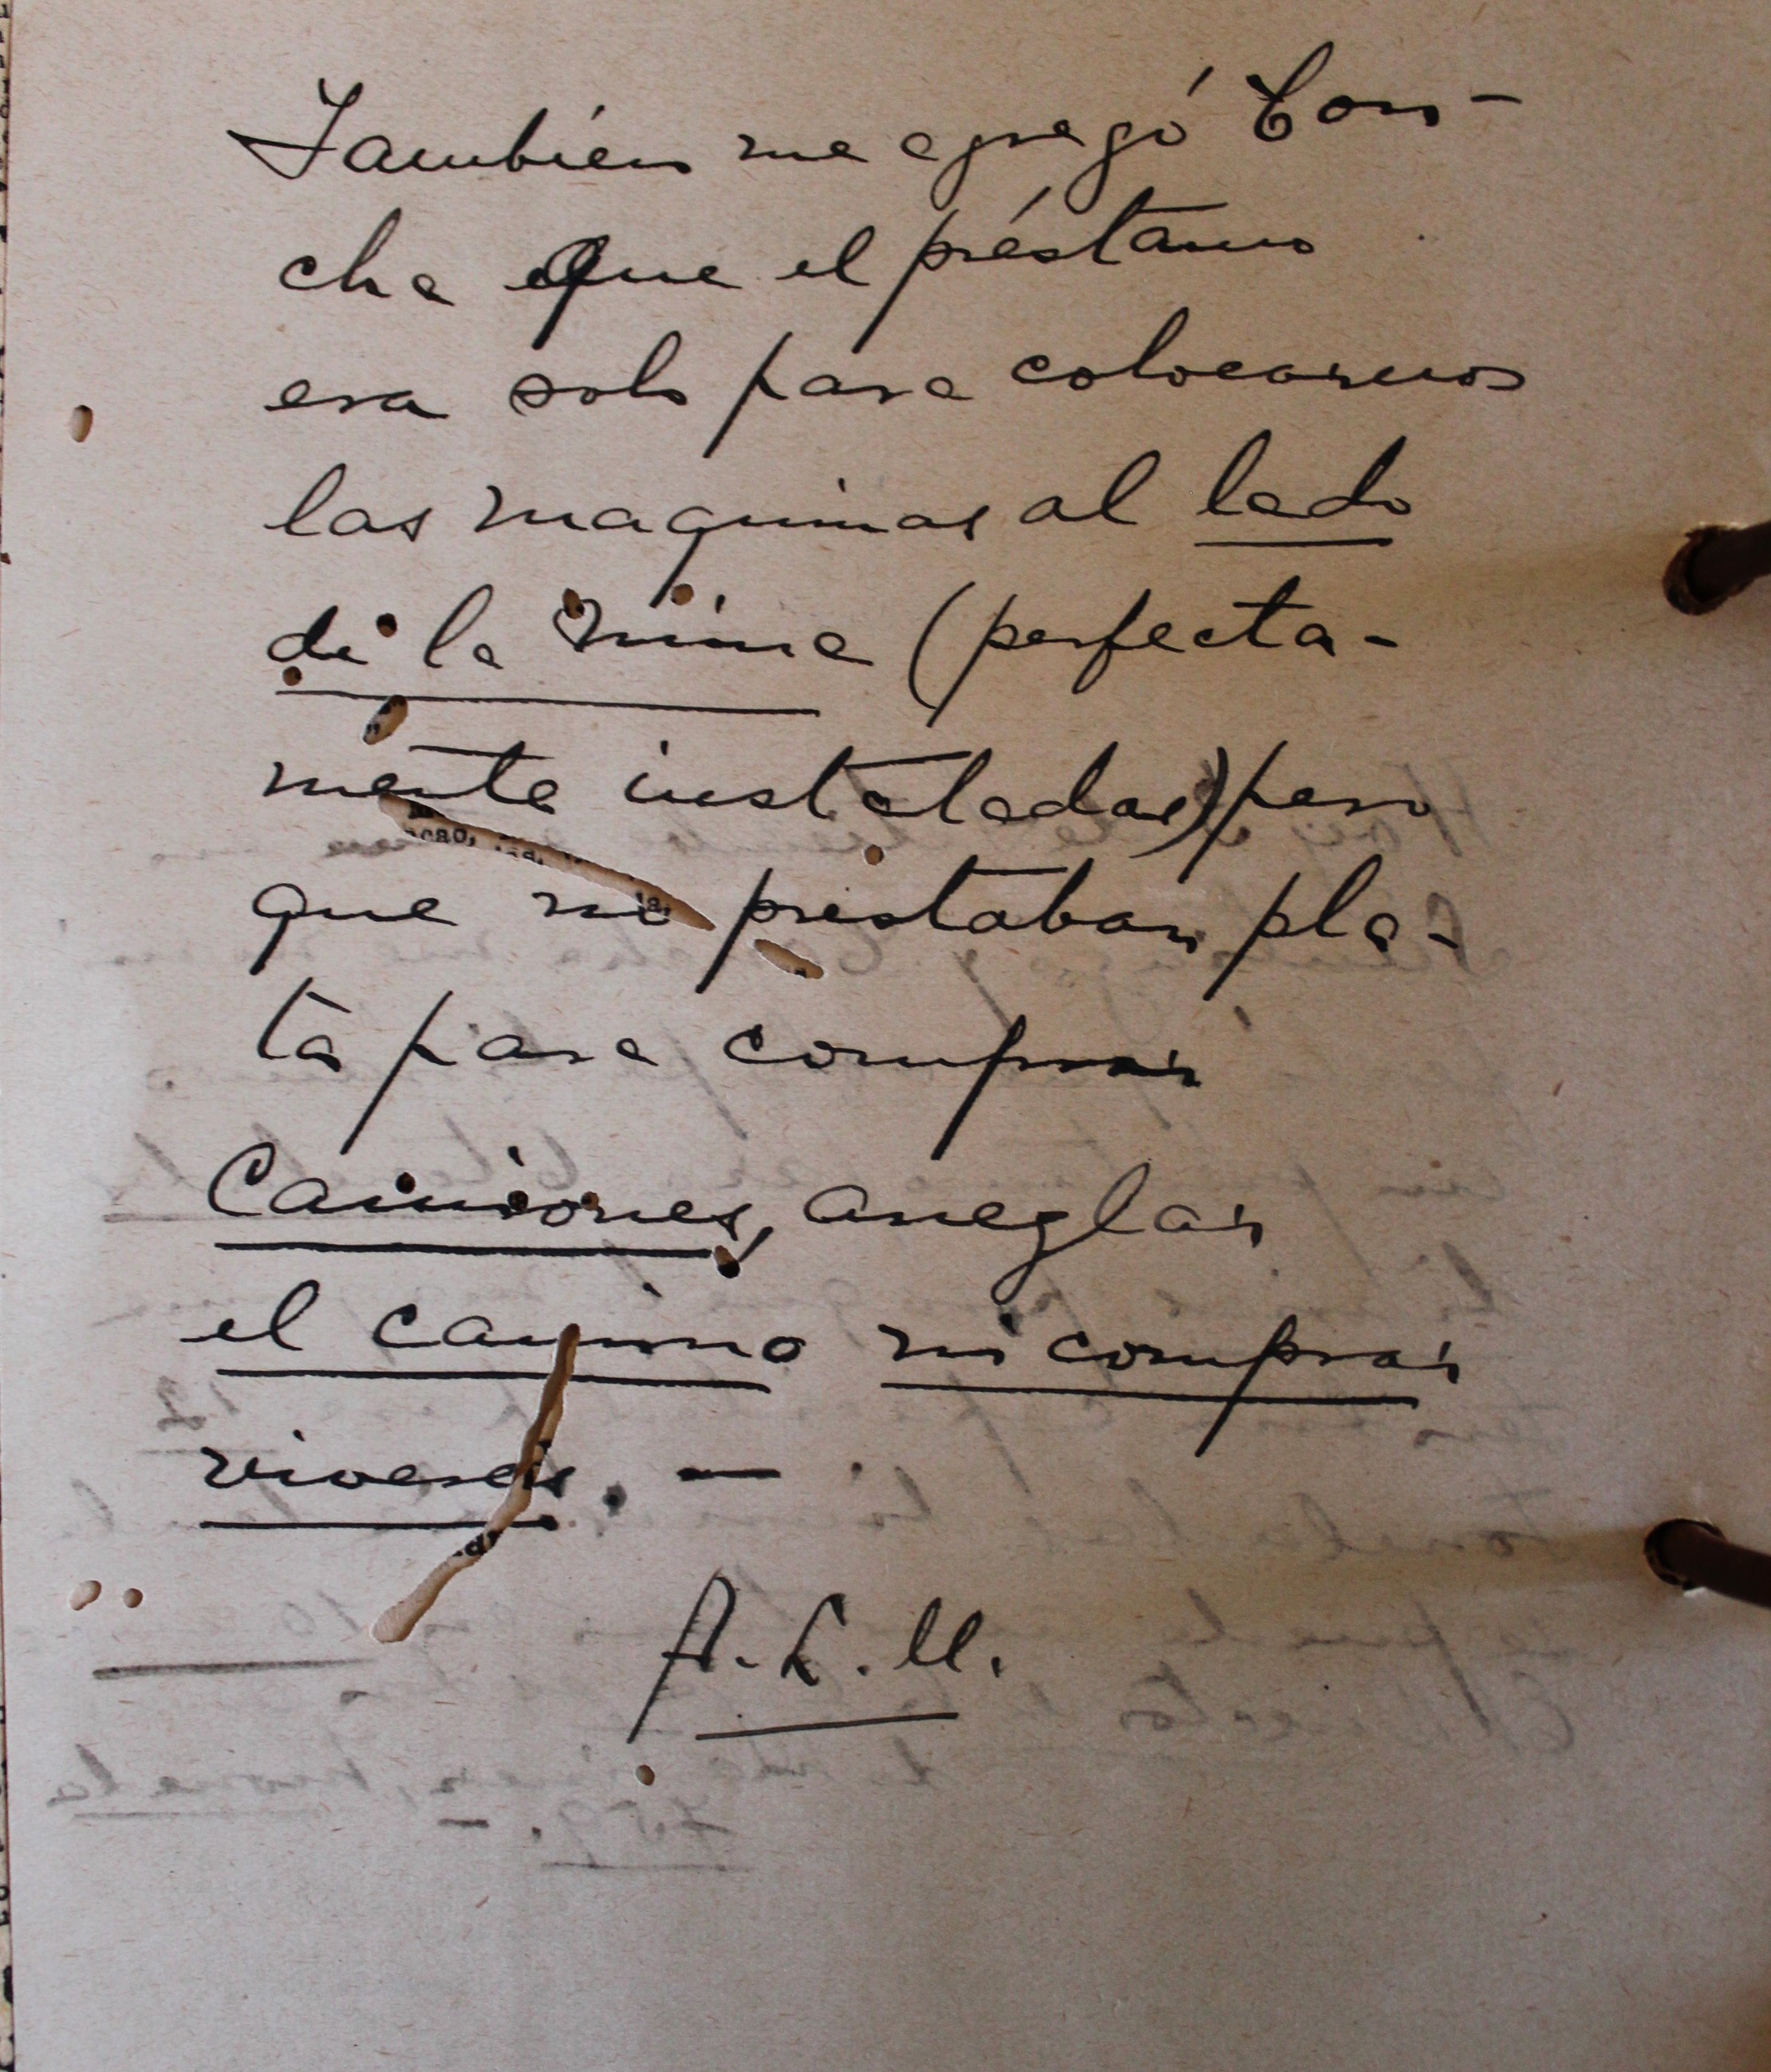 También me agregó Con-
cha que el préstamo
era solo para colocarnos
las maquinas al lado
de la mina (perfecta-
mente instaladas) pero
que no prestaban pla-
ta para comprar
Camiones, arreglar
el camino ni comprar
viveres. —
A. L. M.